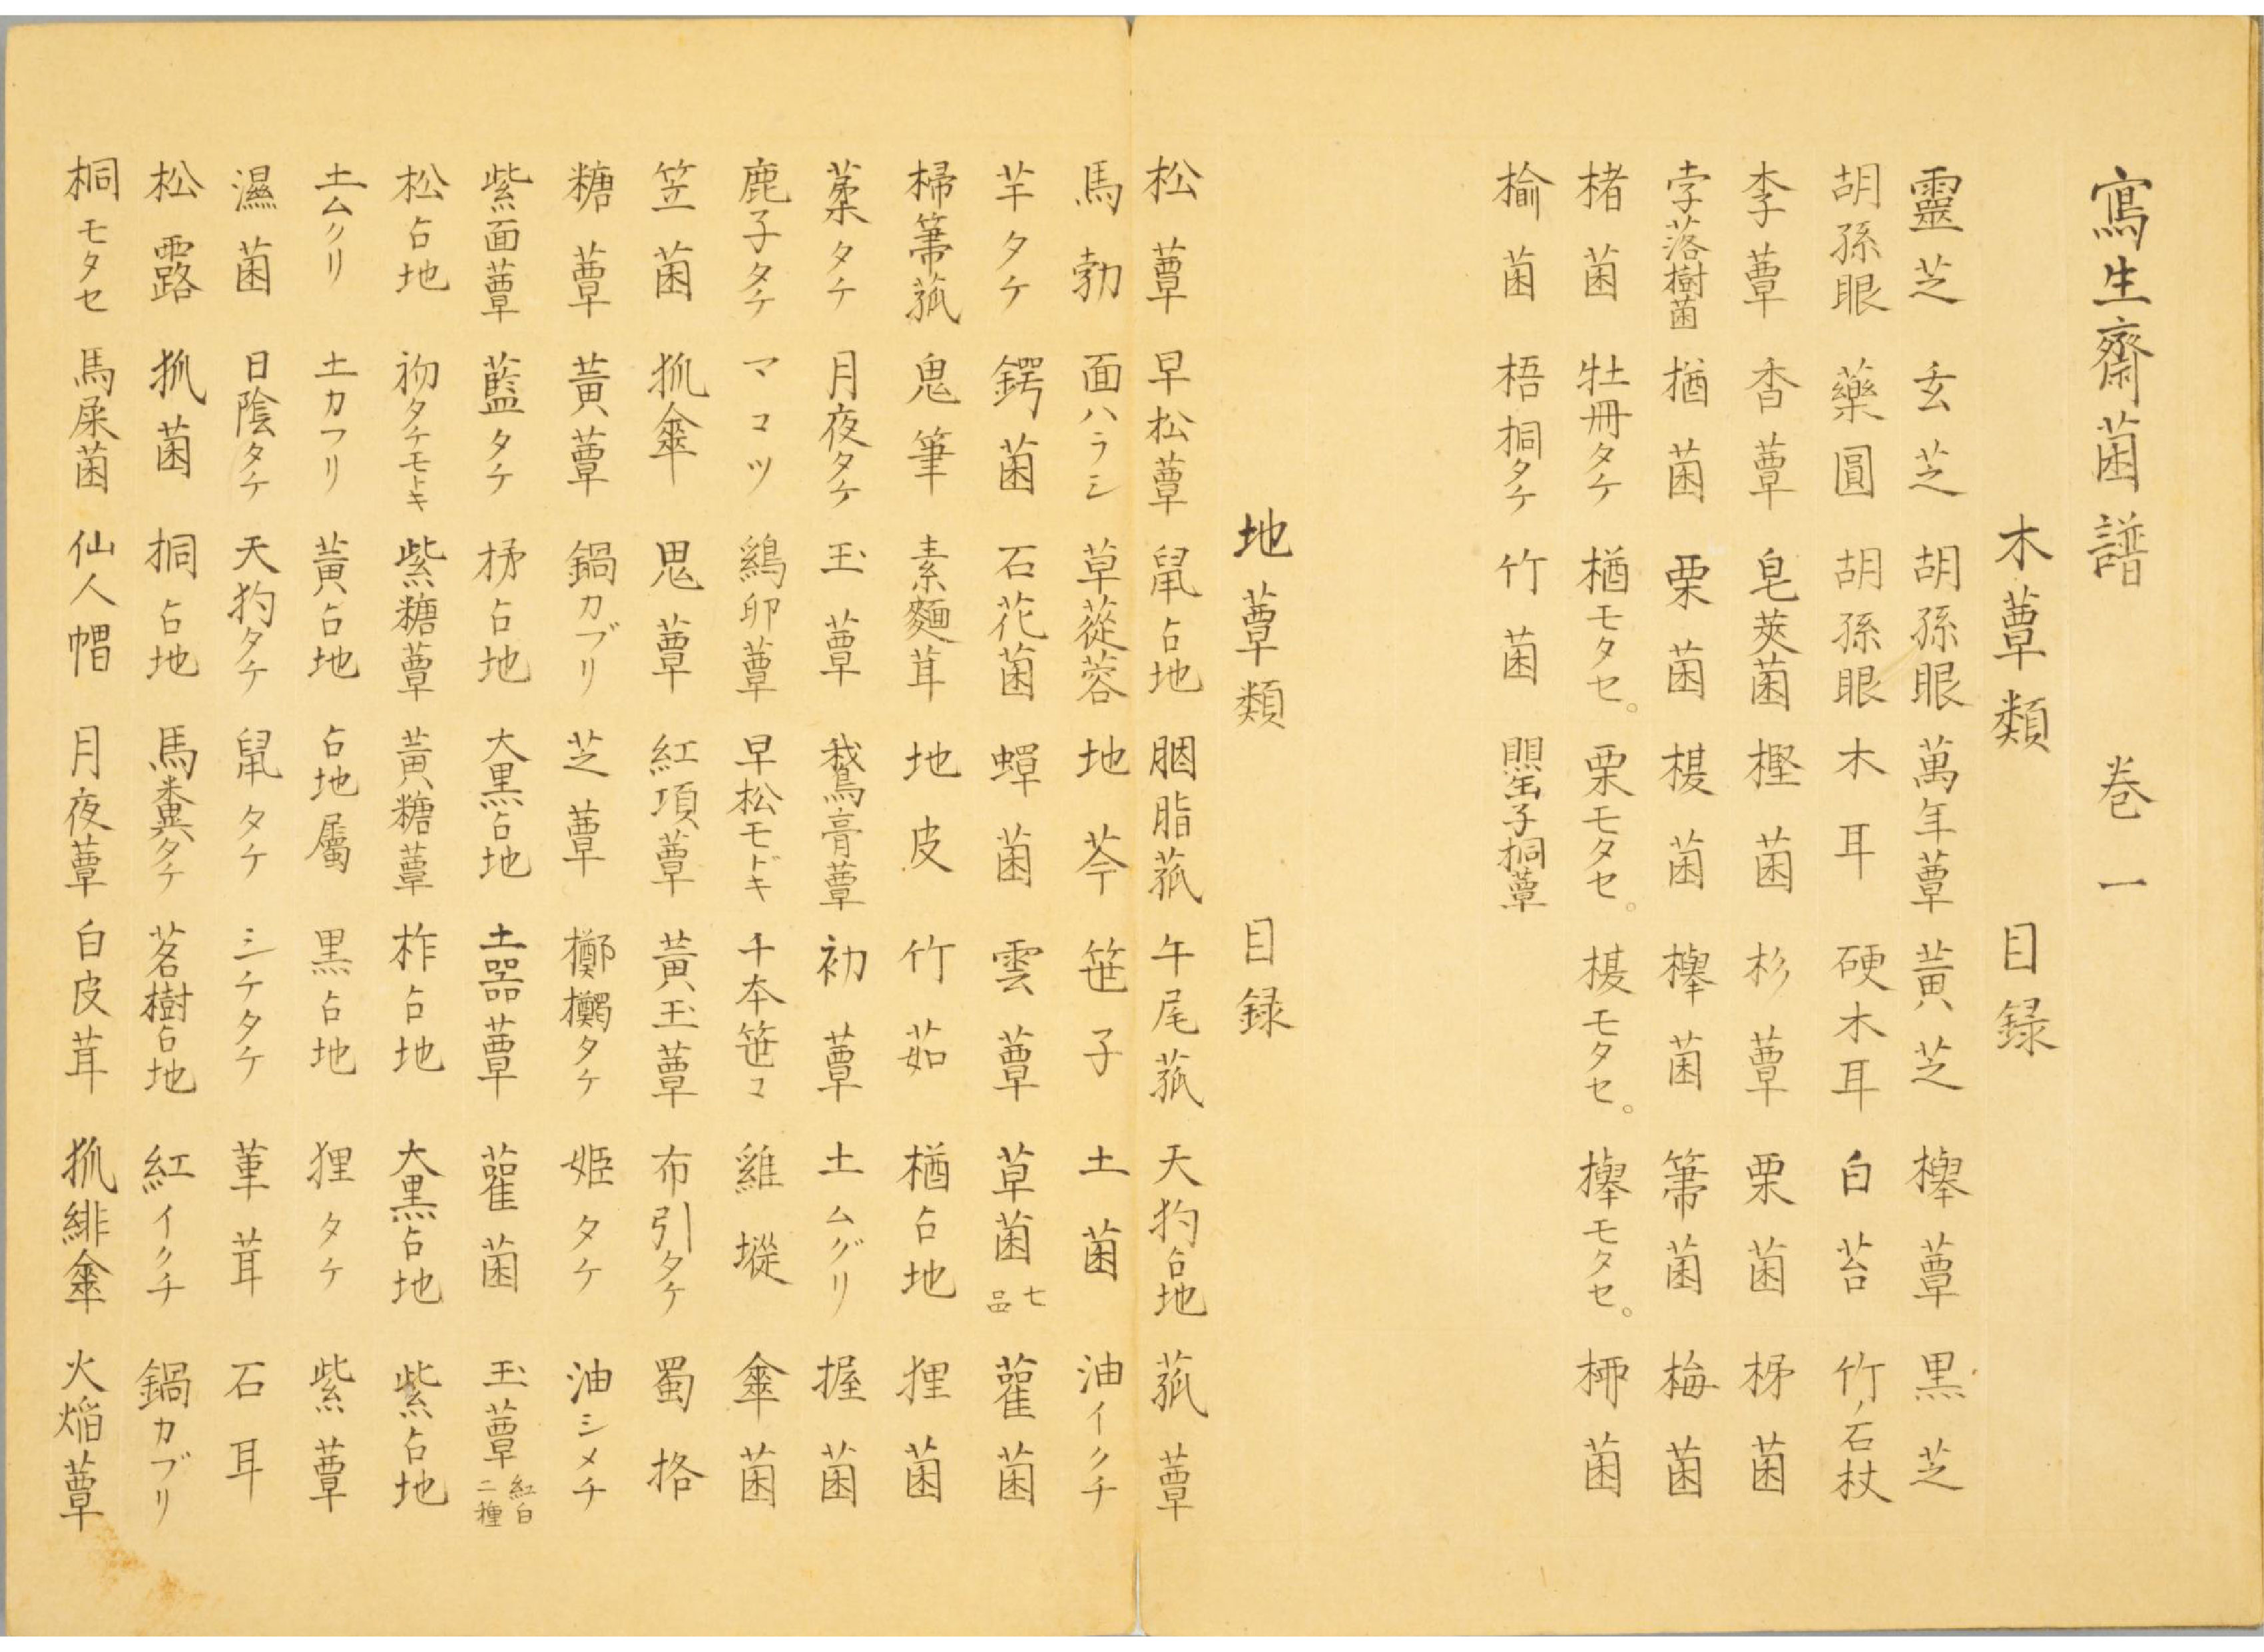 寫生齋菌譜 卷一
木蕈類 目録
靈芝 玄芝 胡孫眼 萬年蕈 黄芝 櫸蕈 黒芝
胡孫眼 藥圓 胡孫眼 木耳 硬木耳 白苔 竹ノ石杖
李蕈 杳蕈 皂莢菌 樫菌 杉蕈 栗菌 桵菌
孛落樹菌 楢菌 栗菌 榎菌 櫸菌 箒菌 梅菌
楮菌 牡冊タケ 楢モタセ。 栗モタセ。 榎モタセ。 櫸モタセ。 栭菌
楡菌 梧桐タケ 竹菌 罌子桐蕈
地蕈類 目録
松蕈 早松蕈 鼠占地 胭脂菰 午尾菰 天狗占地 菰蕈
馬勃 面ハラシ 草蓯蓉 地芩 笹子 土菌 油イクチ
芊タケ 鍔菌 石花菌 蟬菌 雲蕈 草菌 七品 雚菌
掃箒菰 鬼筆 素麵茸 地皮 竹茹 楢占地 狸菌
藁タケ 月夜タケ 玉蕈 鵞膏蕈 初蕈 土ムグリ 握菌
鹿子タケ マコツ 鷄卵蕈 早松モドキ 千本笹コ 雞㙡 傘菌
笠菌 狐傘 鬼蕈 紅項蕈 黄玉蕈 布引タケ 蜀格
糖蕈 黄蕈 鍋カブリ 芝蕈 擲躅タケ 姫タケ 油シメチ
紫面蕈 藍タケ 占地 大黒占地 土器蕈 雚菌 玉蕈 紅白二種
松占地 初タケモドキ 紫糖蕈 黄糖蕈 柞占地 大黒占地 紫占地
土ムクリ 土カフリ 黄占地 占地屬 黒占地 狸タケ 紫蕈
濕菌 日陰タケ 天狗タケ 鼠タケ シチタケ 菫茸 石耳
松露 狐菌 桐占地 馬糞タケ 茗樹占地 紅イクチ 鍋カブリ
桐モタセ 馬屎菌 仙人帽 月夜蕈 白皮茸 狐緋傘 火焔蕈